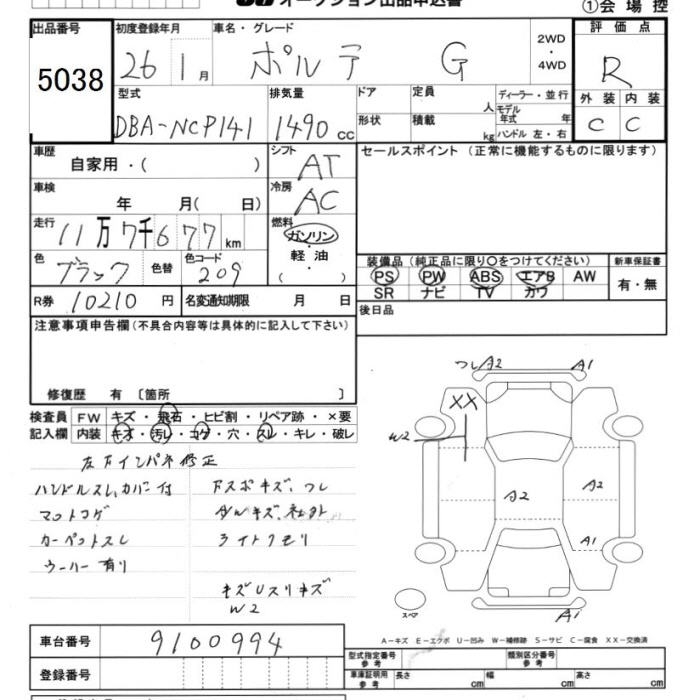 オークション出品申込書
①会場控
出品番号 5038
初度登録年月 26 1月
車名・グレード ポルテ G
2WD・4WD
評価点 R
外装 内装
C C
型式 DBA-NCP141
排気量 1490 cc
ドア 形状
定員 人
積載 kg
ディーラー・並行
モデル年式 年
ハンドル 左・右
車歴 自家用・( )
シフト AT
セールスポイント(正常に機能するものに限ります)
車検 年 月( 日)
冷房 AC
走行 11万7千677km
燃料 ガソリン・軽油・( )
色 ブラック 色替
色コード 209
装備品(純正品に限り○をつけてください)
新車保証書
PS PW ABS エアB AW
SR ナビ TV カワ
有・無
R券 10210円
名変通知期限 月 日
後日品
注意事項申告欄(不具合内容等は具体的に記入して下さい)
修復歴 有〔箇所 〕
検査員記入欄
FW キズ・飛石・ヒビ割・リペア跡・×要
内装 キズ・汚レ・コゲ・穴・スレ・キレ・破レ
左右インパネ修正
ハンドルスレ,カバー付
マットコゲ
カーペットスレ
ウーハー有り
下スポキズ、ツレ
A/Wキズ、社外
ライトクモリ
キズUスリキズ
W2
ツレ A2 A1
XX
W2
A2 A2
A1
スペア
A1
A-キズ E-エクボ U-凹み W-補修跡 S-サビ C-腐食 XX-交換済
車台番号 9100994
型式指定番号 参考
類別区分番号 参考
登録番号
車庫証明用 参考
長さ cm
幅 cm
高さ cm